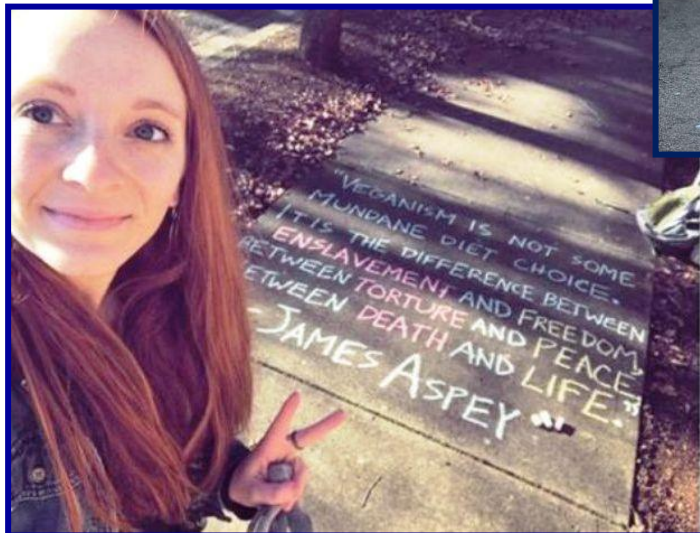 "VEGANISM IS NOT SOME
MUNDANE DIET CHOICE.
IT IS THE DIFFERENCE BETWEEN
ENSLAVEMENT AND FREEDOM,
BETWEEN TORTURE AND PEACE,
BETWEEN DEATH AND LIFE."
-JAMES ASPEY